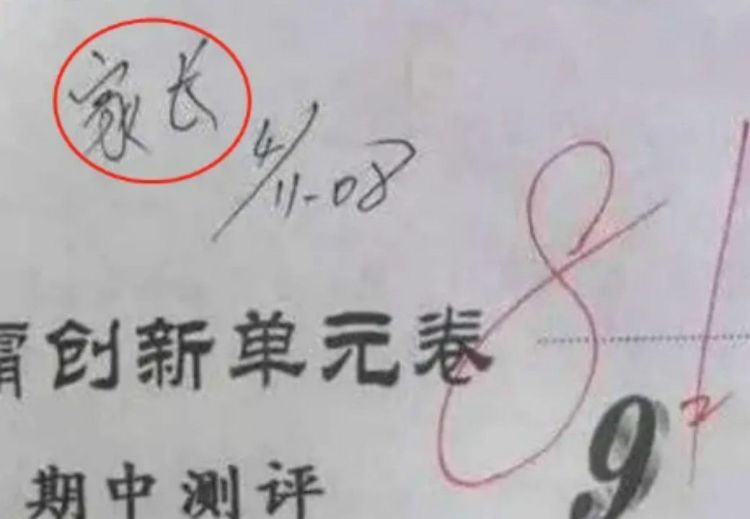 家长
4/11-08
81
霸创新单元卷
期中测评
9